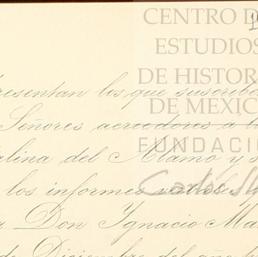 CENTRO D
ESTUDIOS
DE HISTOR
DE MÉXIC
FUNDACI
resentan los que suscribe
Señores acreedores a
alina del Alamo y
los informes
Don Ignacio Ma
de Diciembre del
Carlos